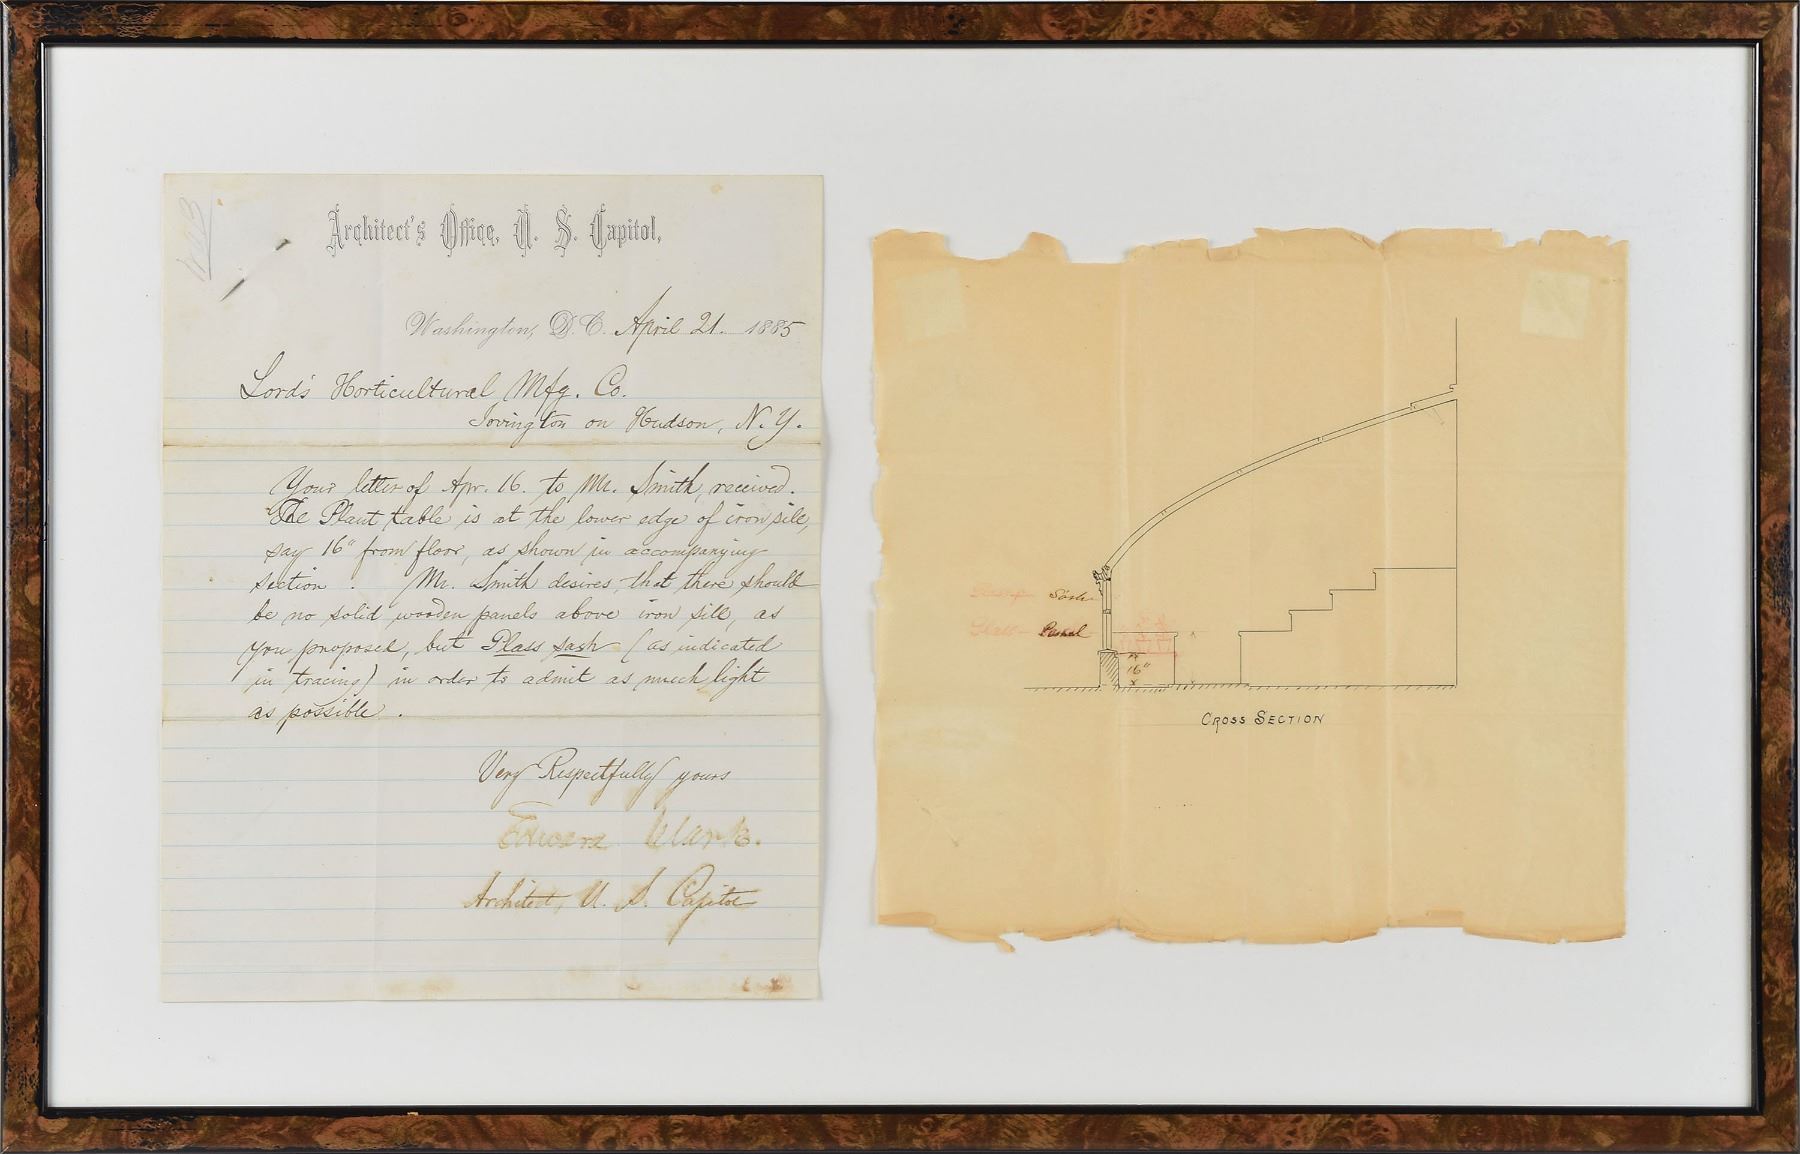 Architect's Office, U. S. Capitol,
Washington, D. C. April 21. 1885
Lord's Horticultural Mfg. Co.
Irvington on Hudson, N. Y.
Your letter of Apr. 16. to Mr. Smith, received.
The Plant table is at the lower edge of iron sill,
say 16" from floor, as shown in accompanying
section. Mr. Smith desires, that there should
be no solid wooden panels above iron sill, as
you proposed, but Glass sash (as indicated
in tracing) in order to admit as much light
as possible.
Very Respectfully yours
Edward Clark.
Architect, U. S. Capitol
Sash
Panel
16"
CROSS SECTION